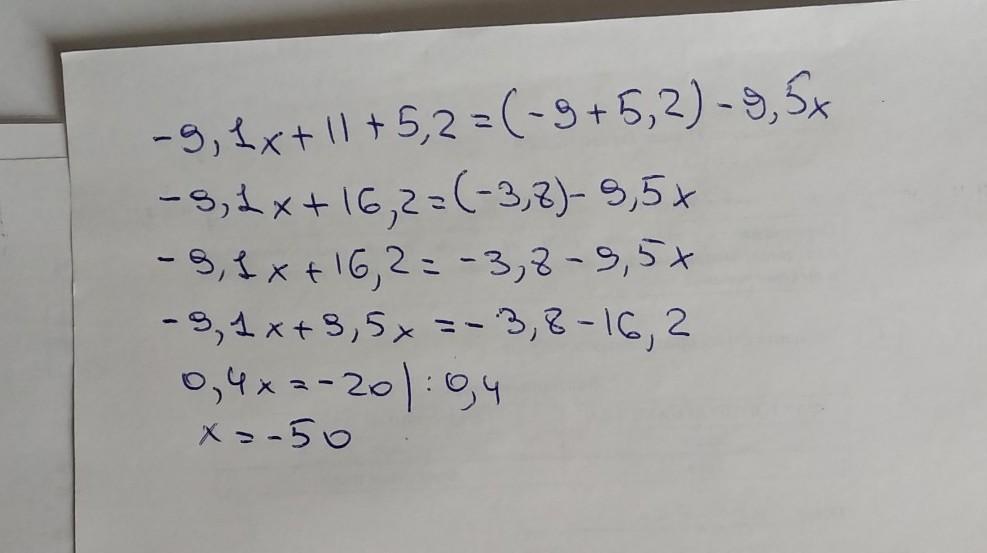 -9,1x+11+5,2=(-9+5,2)-9,5x
-9,1x+16,2=(-3,8)-9,5x
-9,1x+16,2=-3,8-9,5x
-9,1x+9,5x=-3,8-16,2
0,4x=-20|:0,4
x=-50